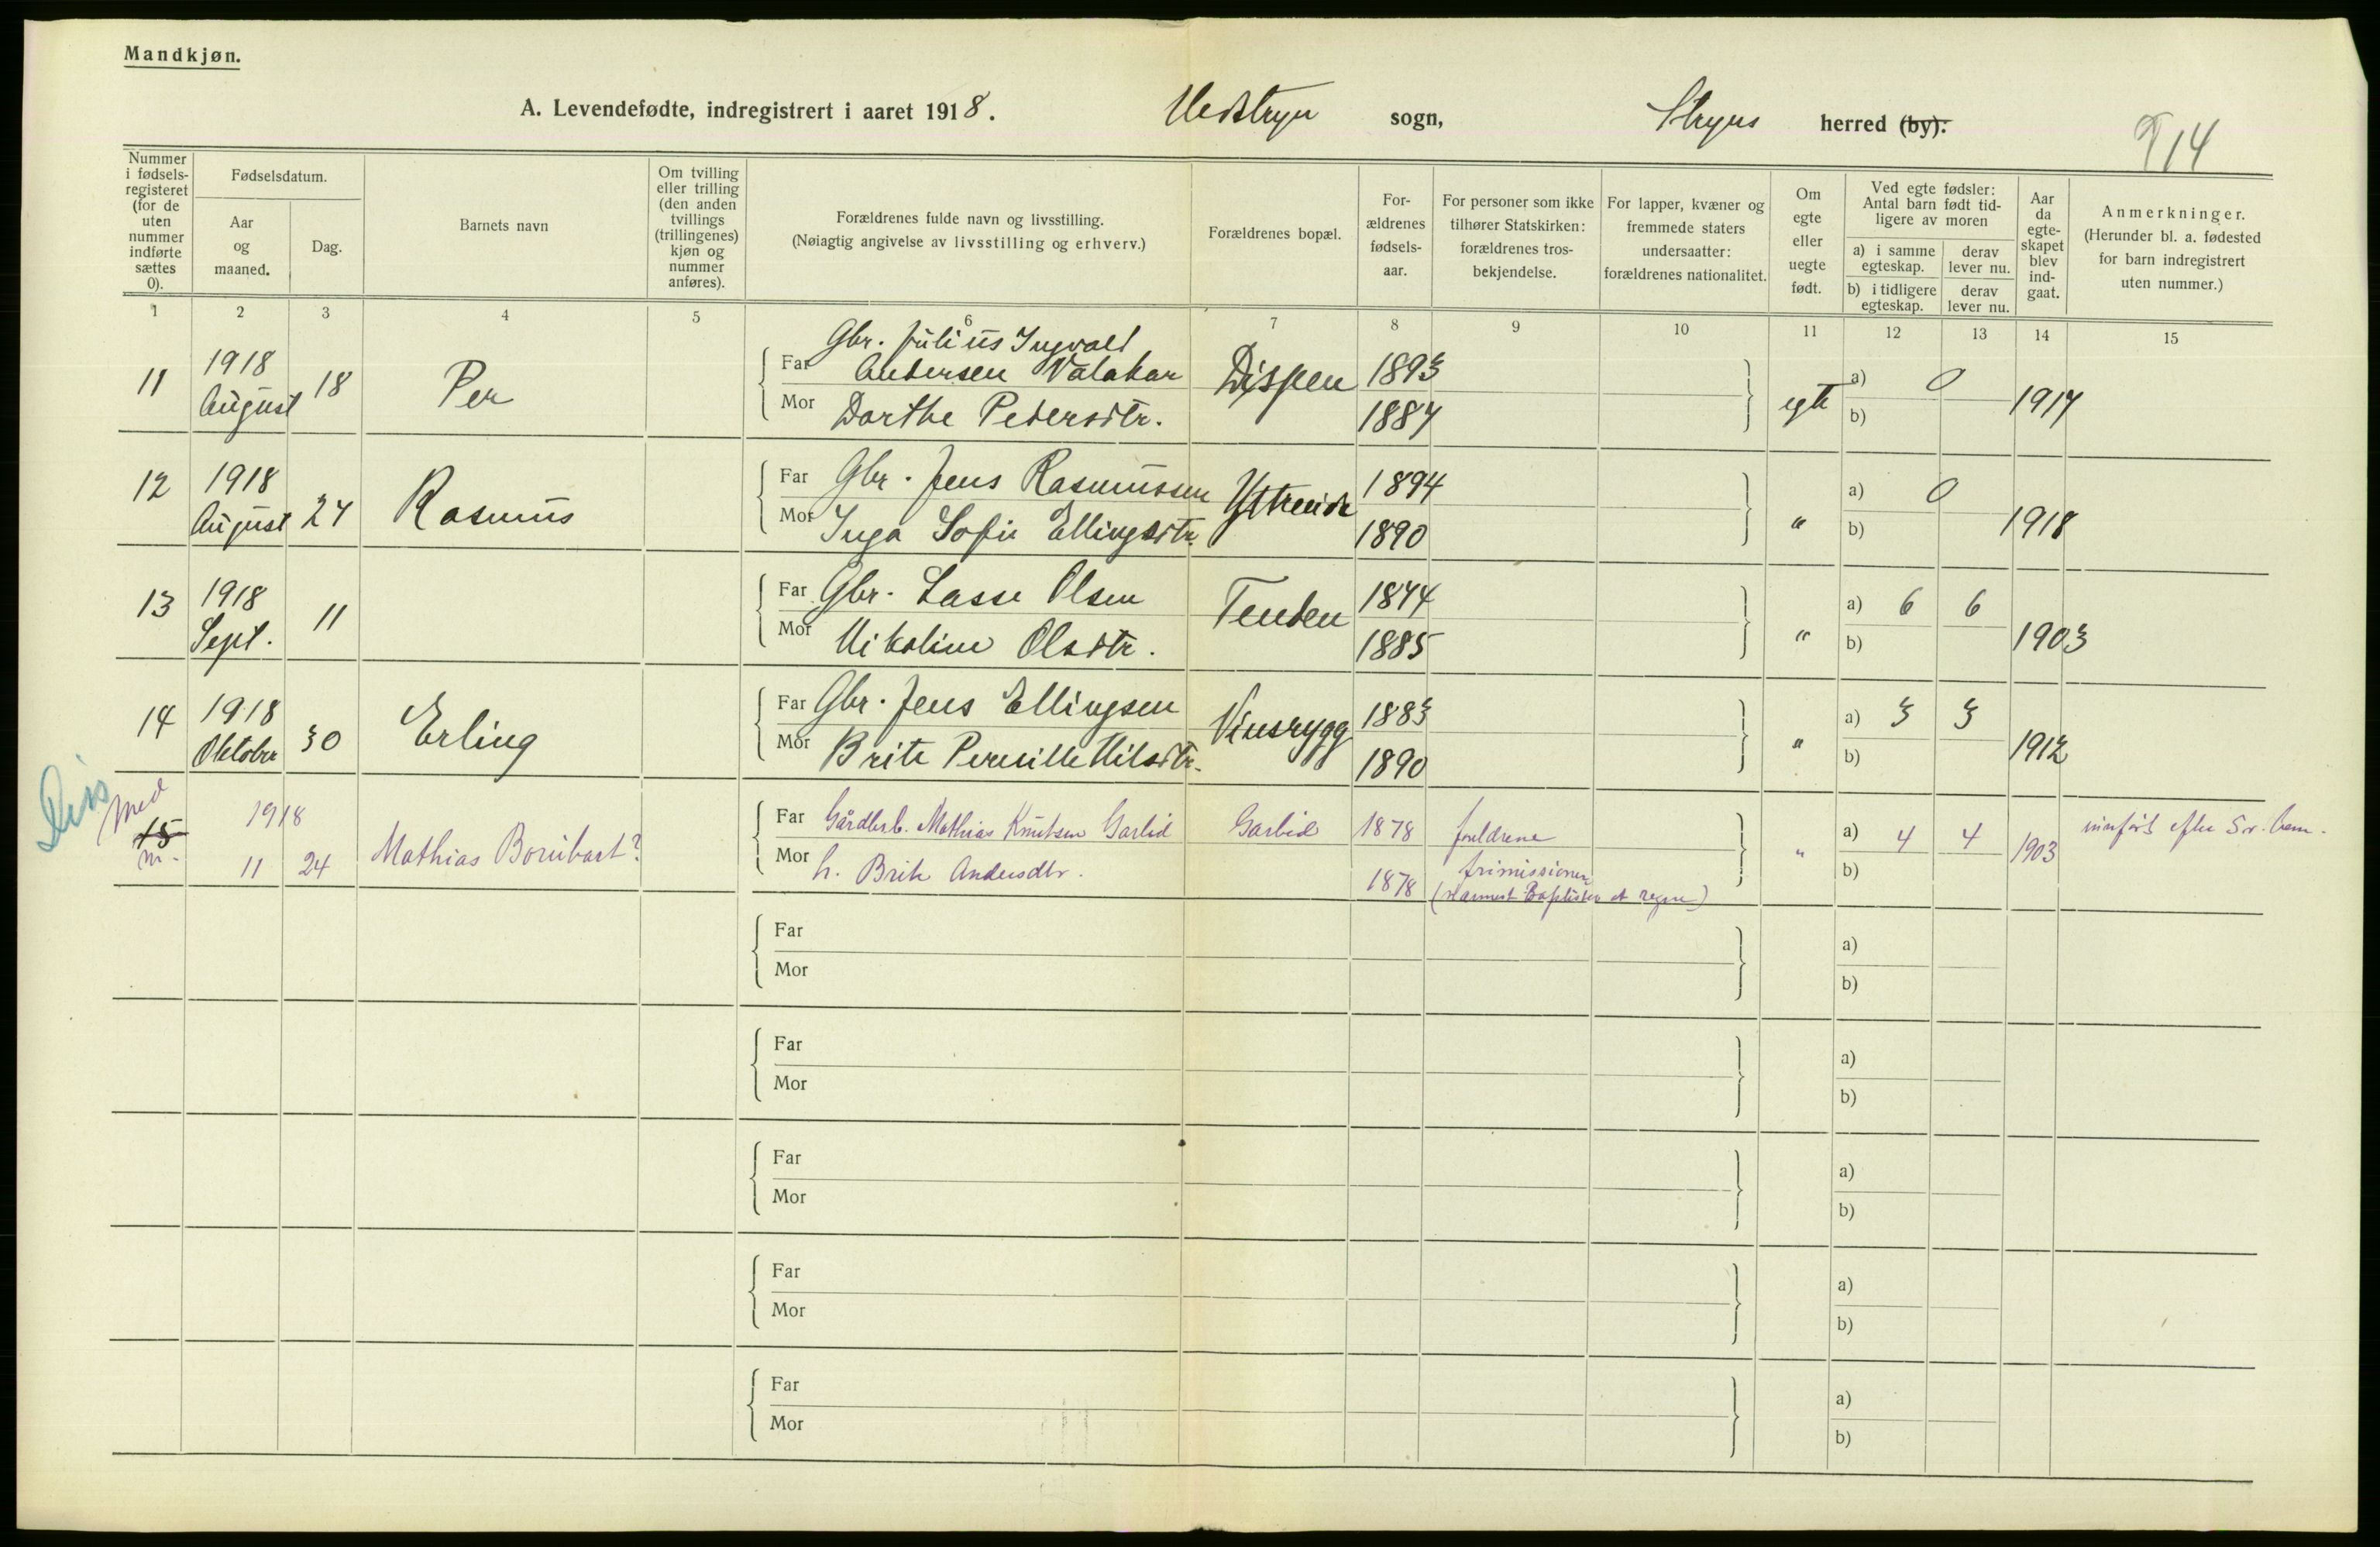 Mandkjøn.
A. Levendefødte, indregistrert i aaret 1918. Nedstryn sogn, Stryns herred (by).
914
Nummer i fødsels-registeret (for de uten nummer indførte sættes 0).
Fødselsdatum.
Aar og maaned.
Dag.
Barnets navn
Om tvilling eller trilling (den anden tvillings (trillingenes) kjøn og nummer anføres).
Forældrenes fulde navn og livsstilling.
(Nøiagtig angivelse av livsstilling og erhverv.)
Forældrenes bopæl.
For-ældrenes fødsels-aar.
For personer som ikke tilhører Statskirken: forældrenes tros-bekjendelse.
For lapper, kvæner og fremmede staters undersaatter: forældrenes nationalitet.
Om egte eller uegte født.
Ved egte fødsler: Antal barn født tid-ligere av moren
a) i samme egteskap.
derav lever nu.
b) i tidligere egteskap.
derav lever nu.
Aar da egte-skapet blev ind-gaat.
Anmerkninger.
(Herunder bl. a. fødested for barn indregistrert uten nummer.)
1 2 3 4 5 6 7 8 9 10 11 12 13 14 15
11 1918 August 18 Per
Far Gbr. Julius Ingvald Andersen Valaker Dispen 1893
Mor Dorthe Pedersdtr. 1887
egte a) 0 b) 1917
12 1918 August 24 Rasmus
Far Gbr. Jens Rasmussen Ytreeide 1894
Mor Inga Sofie Ellingsdtr. 1890
" a) 0 b) 1918
13 1918 Sept. 11
Far Gbr. Lasse Olsen Tenden 1877
Mor Nikoline Olsdtr. 1885
" a) 6 6 b) 1903
14 1918 Oktober 30 Erling
Far Gbr. Jens Ellingsen Vinsrygg 1883
Mor Brite Pernille Nilsdtr. 1890
" a) 3 3 b) 1912
Dis
med
15
nr.
1918 11 24 Mathias Bornibart?
Far Gårdbr. Mathias Knutsen Garlid Garlid 1878 foreldrene
Mor h. Brite Andersdtr. 1878 frimissionen
(nærmest Baptister at regne)
" a) 4 4 b) 1903
Far
Mor
a)
b)
Far
Mor
a)
b)
Far
Mor
a)
b)
Far
Mor
a)
b)
Far
Mor
a)
b)